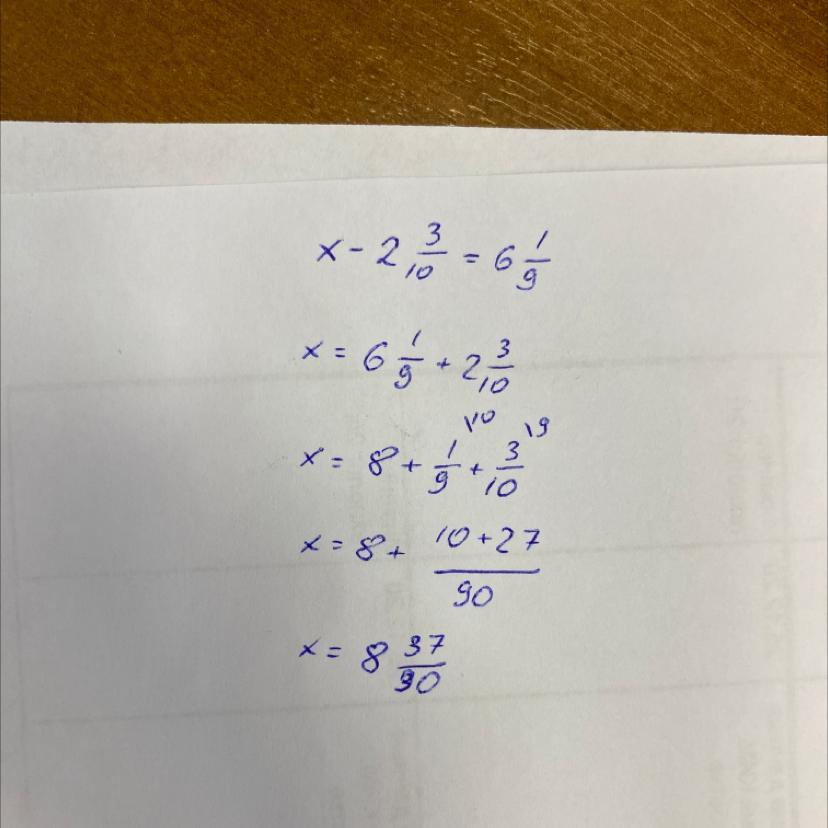 x - 2 3/10 = 6 1/9
x = 6 1/9 + 2 3/10
x = 8 + 1/9 \10 + 3/10 \9
x = 8 + (10 + 27)/90
x = 8 37/90